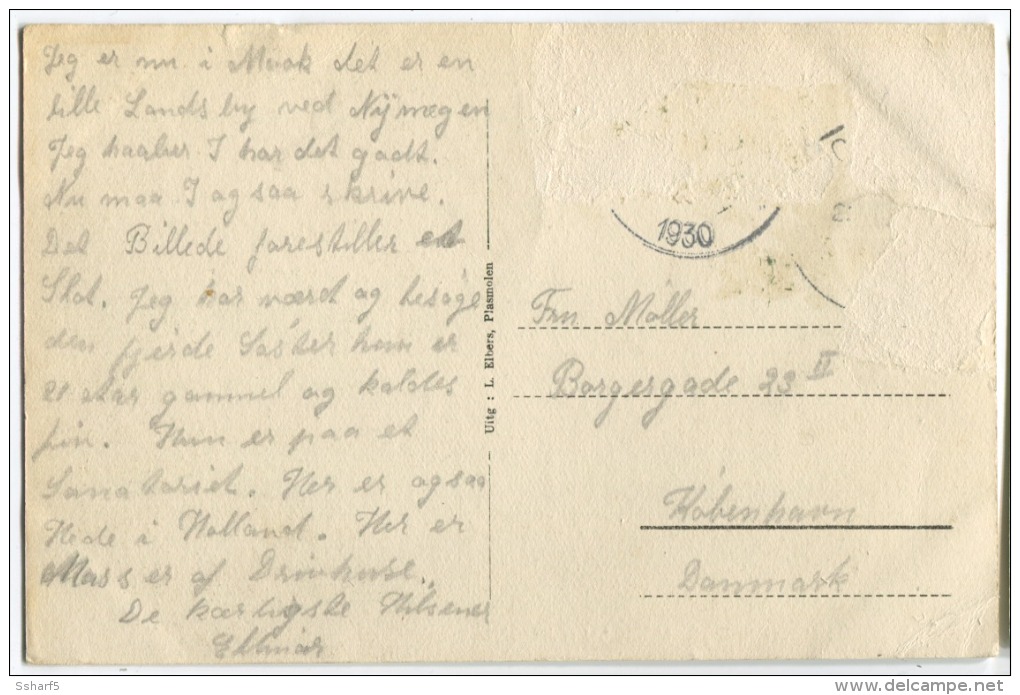 Jeg er nu i Mook det er en
lille Landsby ved Nÿmegen
Jeg haaber I har det godt.
Nu maa I ogsaa skrive.
Det Billede forestiller et
Slot. Jeg har været og besøge
den fjerde Søster hun er
21 Aar gammel og kaldes
Hun er paa et
Sanatoriet. Her er ogsaa
Hede i Holland. Her er
Masser af Drivhuse.
De kærligste Hilsener
Uitg : L. Elbers, Plasmolen
1930
Fru Møller
Borgergade 23 II
København
Danmark
Ssharf5